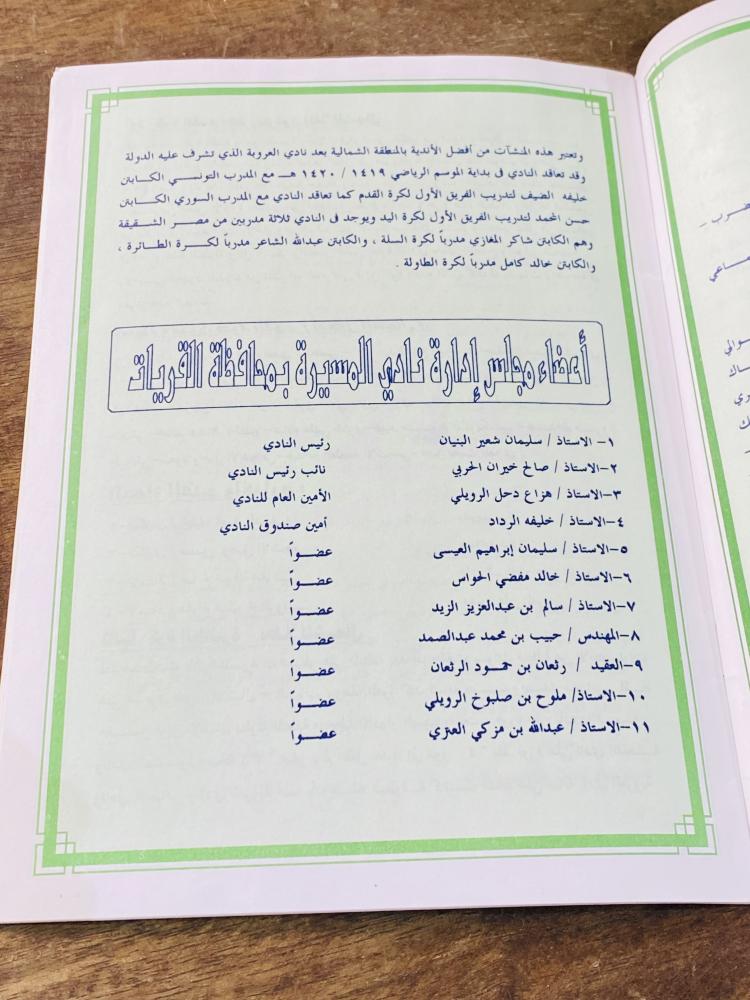 وتعتبر هذه المنشآت من أفضل الأندية بالمنطقة الشمالية بعد نادي العروبة الذي تشرف عليه الدولة
وقد تعاقد النادي فى بداية الموسم الرياضي ١٤١٩ / ١٤٢٠ هـــ مع المدرب التونسي الكـــابتن
خليفه الضيف لتدريب الفريق الأول لكرة القدم كما تعاقد النادي مع المدرب السوري الكابتن
حسن المحمد لتدريب الفريق الأول لكرة اليد ويوجد فى النادي ثلاثة مدربين من مصر الشقيقة
وهم الكابتن شاكر المغازي مدرباً لكرة السلة ، والكابتن عبدالله الشاعر مدرباً لكـــرة الطائـرة ،
والكابتن خالد كامل مدرباً لكرة الطاولة .
أعضاء مجلس إدارة نادي المسيرة بمحافظة القريات
١- الاستاذ / سليمان شعير البنيان رئيس النادي
٢-الاستاذ / صالح خيران الحربي نائب رئيس النادي
٣-الاستاذ / هزاع دحل الرويلي الأمين العام للنادي
٤-الاستاذ / خليفه الرداد أمين صندوق النادي
٥-الاستاذ / سليمان إبراهيم العيسى عضـــواً
٦-الاستاذ / خالد مفضي الحواس عضـــواً
٧-الاستاذ / سالم بن عبدالعزيز الزيد عضـــواً
٨-المهندس / حبيب بن محمد عبدالصمد عضـــواً
٩-العقيد / رثعان بن حمــود الرثعان عضـــواً
١٠-الاستاذ/ ملوح بن صلبوخ الرويلي عضـــواً
١١-الاستاذ / عبدالله بن مزكي العنزي عضـــواً